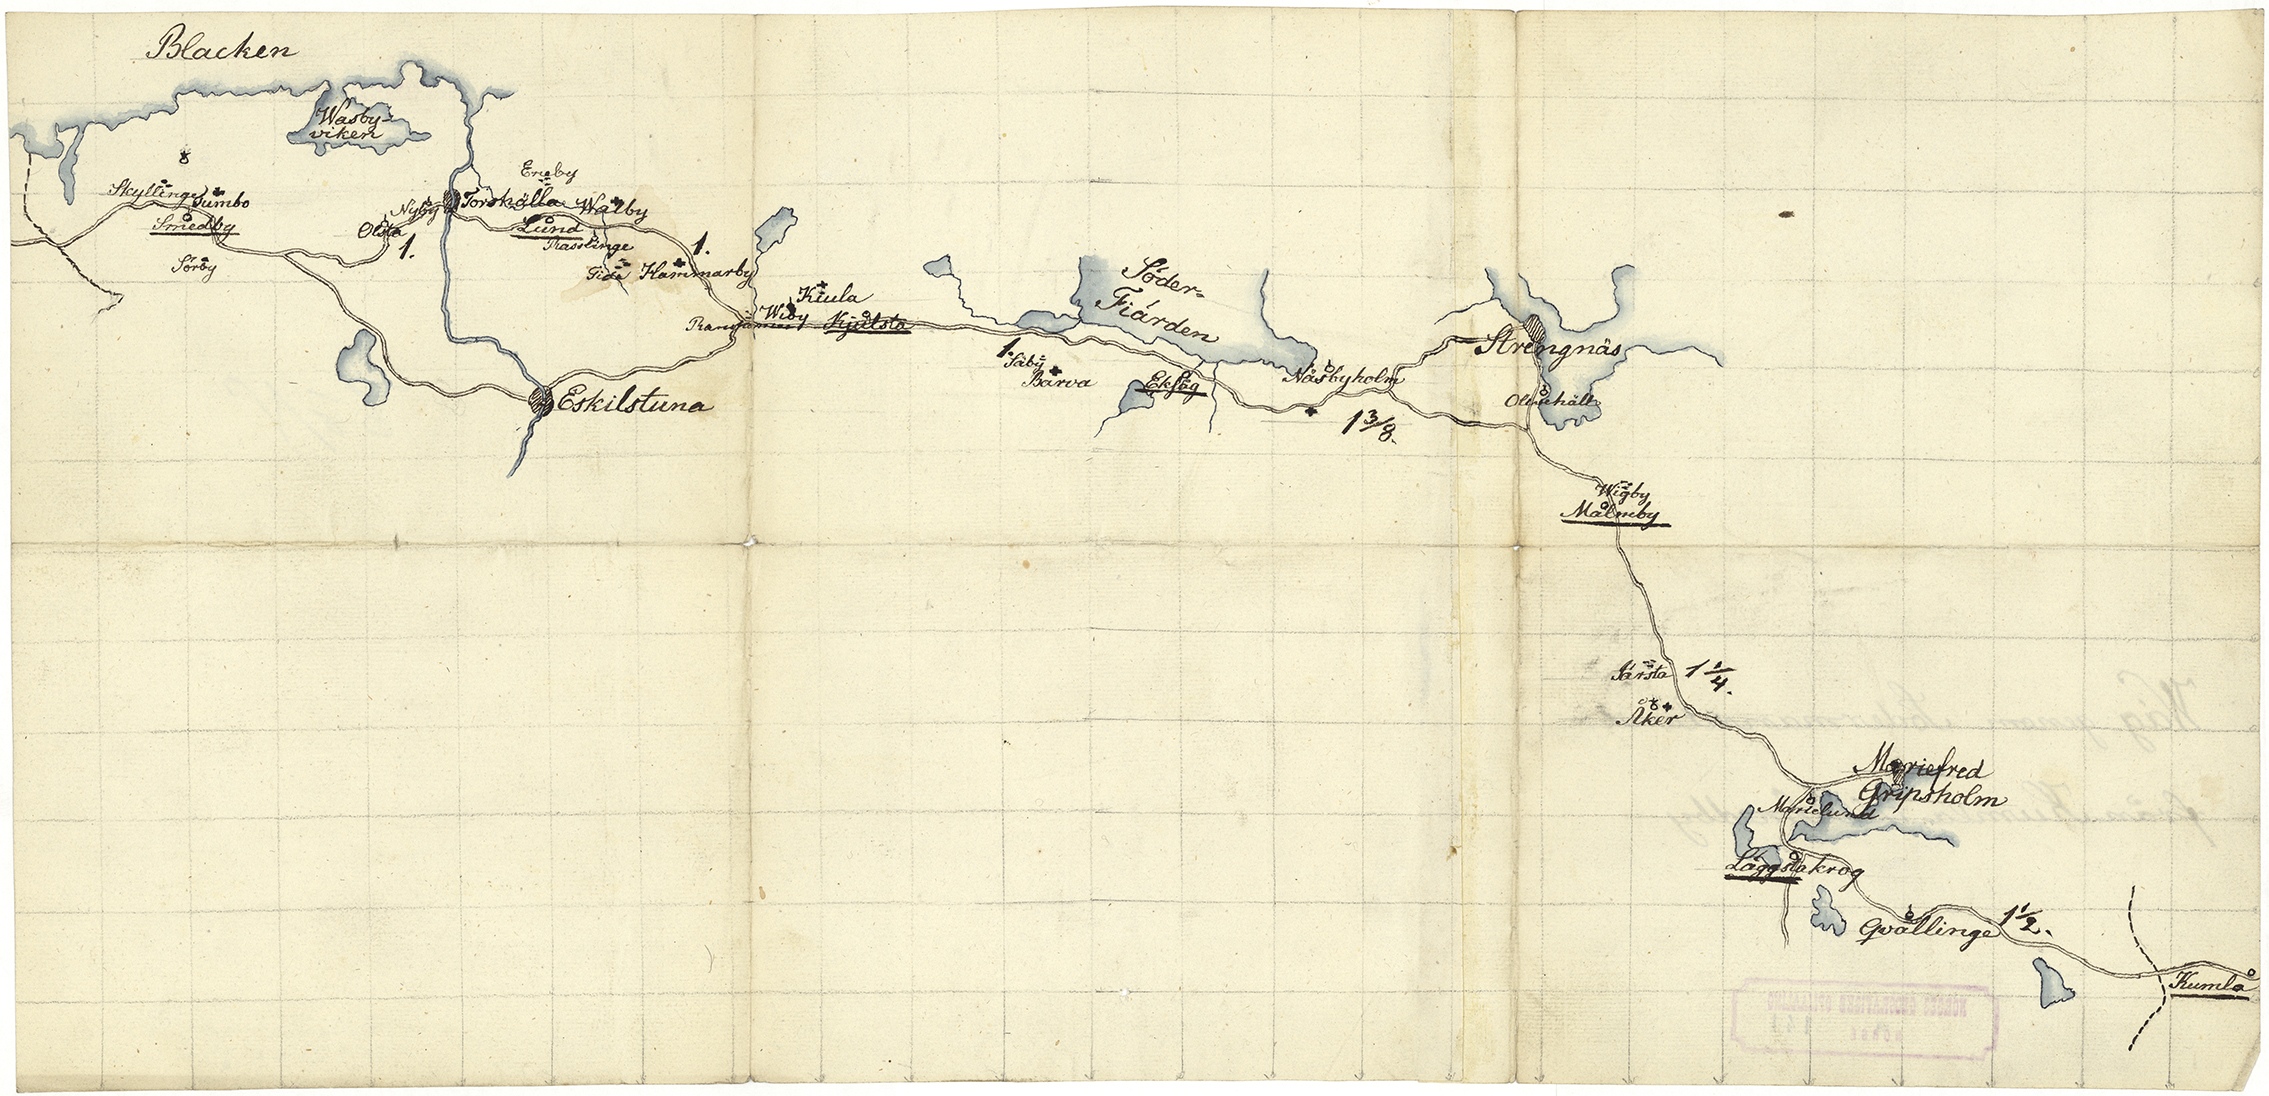 Blacken
Wasby-
viken
Skyllinge
Tumbo
Smedby
Sörby
Olsta
1.
Nyby
Torshälla
Eneby
Walby
Lund
Rasslinge
1.
Tida
Hammarby
Kiula
Wiby
Kjulsta
Eskilstuna
Söder-
Fiärden
1.
Säby
Barva
Eksåg
Nåsbyholm
1 3/8.
Strengnäs
Wigby
Malmby
Järsta
1 1/4.
Åker
Mariefred
Gripsholm
Marielund
Läggstakrog
Gvällinge
1 1/2.
Kumla